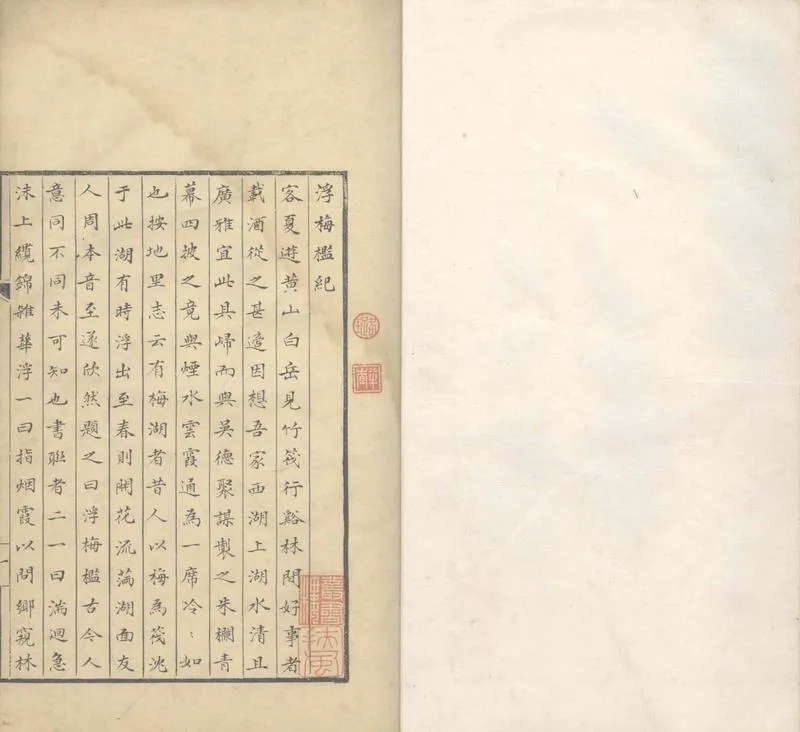 浮梅檻紀
客夏遊黃山白岳見竹筏行谿林間好事者
載酒從之甚適因想吾家西湖上湖水清且
廣雅宜此具歸而與吳德聚謀製之朱欄青
幕四披之竟與煙水雲霞通為一席冷：如
也按地里志云有梅湖者昔人以梅為筏沈
于此湖有時浮出至春則開花流滿湖面友
人周本音至遂欣然題之曰浮梅檻古今人
意同不同未可知也書聯者二一曰湍迴急
沫上纜錦雜華浮一曰指烟霞以問鄉窺林